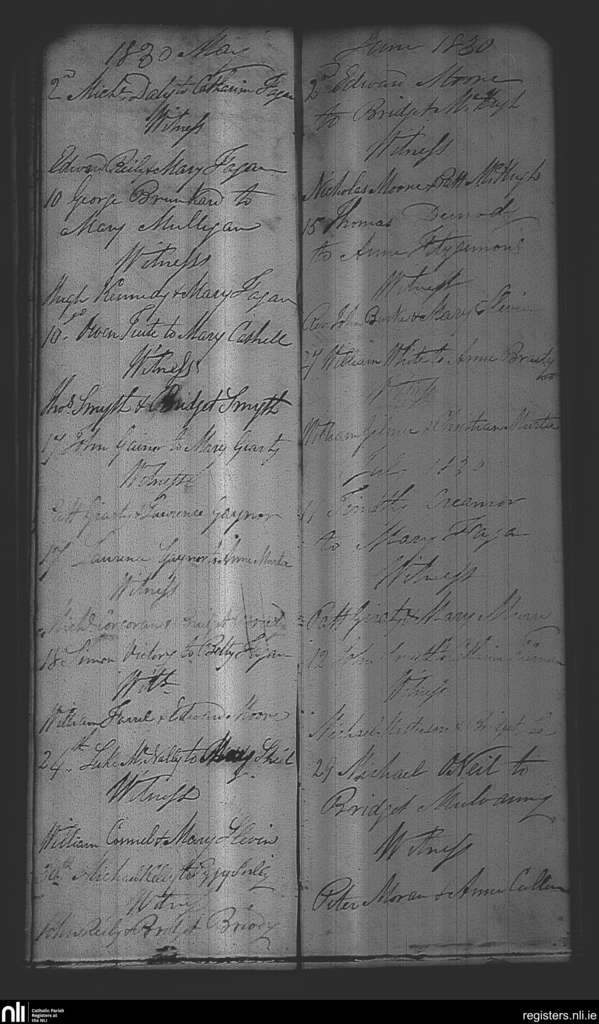 1830 May
2nd Michl. Daly to Catharine Fagan
Witness
Edward Reily & Mary Fagan
10 George Brunkard to
Mary Mulligan
Witness
Hugh Kennedy & Mary Fagan
10th Owen Tuite to Mary Cashell
Witness
Thos. Smyth & Bridget Smyth
17 John Gaynor to Mary Gearty
Witness
Patt & Lawrence Gaynor
17 Laurence Gaynor to Anne Murta
Witness
Corcoran
18th Simon Victory to Betty Fagan
Witt
William Farrel & Edward Moore
24th Luke McNally to Mary Sheil
Witness
William Connel & Mary Slevin
30th Michael to
Witness
John Reily & Bridget Briody
June 1830
2nd Edward Moore
to Bridget McHugh
Witness
Nicholas Moore & Patt McHugh
15 Thomas
to Anne Fitzsimons
Witness
Rev John Burke & Mary Slevin
27 William White to Anne
Witness
William & Christian Murta
July 1830
11 Timothy Creamor
to Mary Fagan
Witness
Patt Gearty & Mary
12 John to
Witness
Michael &
29 Michael ONeil to
Bridget Mulvanny
Witness
Peter Moran & Anne Cullen
nli
Catholic Parish
Registers at
the NLI
registers.nli.ie